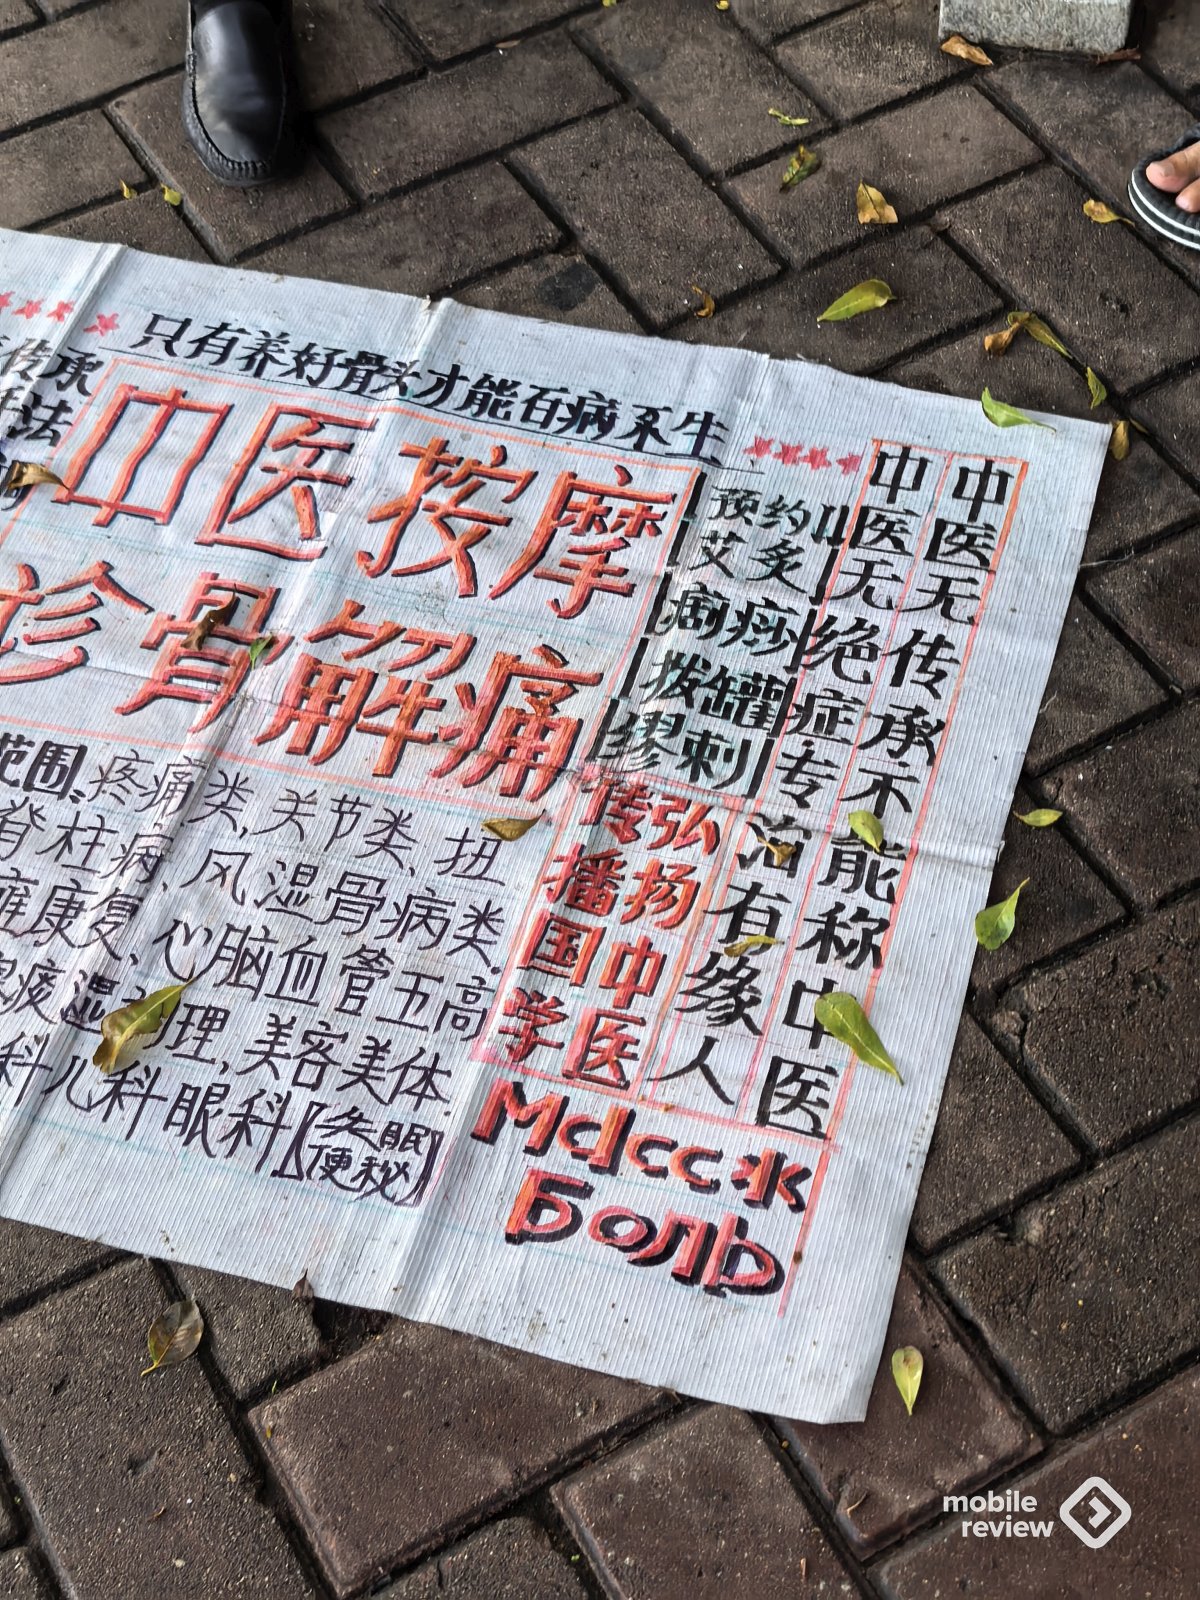 只有养好骨头才能百病不生
传承
法
中医按摩
诊骨解痛
范围:疼痛类,关节类,扭
脊柱病,风湿骨病类.
瘫康复,心脑血管五高
痰湿调理,美容美体.
科儿科眼科【失眠便秘】
预约
艾炙
痧
拨罐
刺
弘扬中医
传播国学
中医无传承不能称中医
中医无绝症专治有缘人
Массаж
Боль
mobile
review